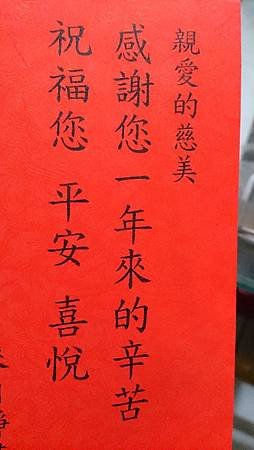 親愛的慈美
感謝您一年來的辛苦
祝福您 平安 喜悅